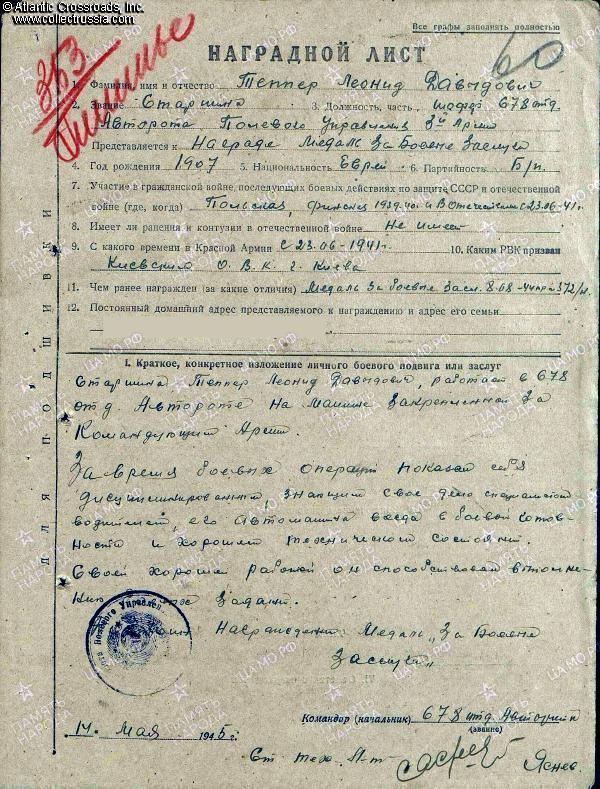 © Atlantic Crossroads, Inc.
www.collectrussia.com
Все графы заполнять полностью
60
353
НАГРАДНОЙ ЛИСТ
1. Фамилия, имя и отчество Теппер Леонид Давыдович
2. Звание Старшина 3. Должность, часть шофер 678 отд.
Авторота Полевого Управления 3й Армии
Представляется к Награде Медаль За Боевые Заслуги
4. Год рождения 1907 5. Национальность Еврей 6. Партийность Б/п.
7. Участие в гражданской войне, последующих боевых действиях по защите СССР и отечественной
войне (где, когда) Польская, Финская 1939-40г и В Отечествен с 23.06-41г.
8. Имеет ли ранения и контузии в отечественной войне Не имеет
9. С какого времени в Красной Армии с 23.06-1941г. 10. Каким РВК призван
Киевского О.В.К. г. Киева
11. Чем ранее награжден (за какие отличия) Медаль За боевые засл. 8.08-44 пр 372/н.
12. Постоянный домашний адрес представляемого к награждению и адрес его семьи
ДЛЯ ПОДШИВКИ
I. Краткое, конкретное изложение личного боевого подвига или заслуг
Старшина Теппер Леонид Давыдович, работает в 678
отд. Автороте на машине закрепленной за
Командующим Армии.
За время боевых операций показал себя
дисциплинированный, знающим свое дело специалистом
водителем, его автомашина всегда в боевой готов-
ности и хорошем техническом состоянии.
Своей хорошей работой он способствовал выполне-
нию заданий.
Награждения Медаль „За Боевые
Заслуги"
14 Мая 1945 г.
Командир (начальник) 678 отд. Авторотой
(звание)
Ст тех. л-т Яснев